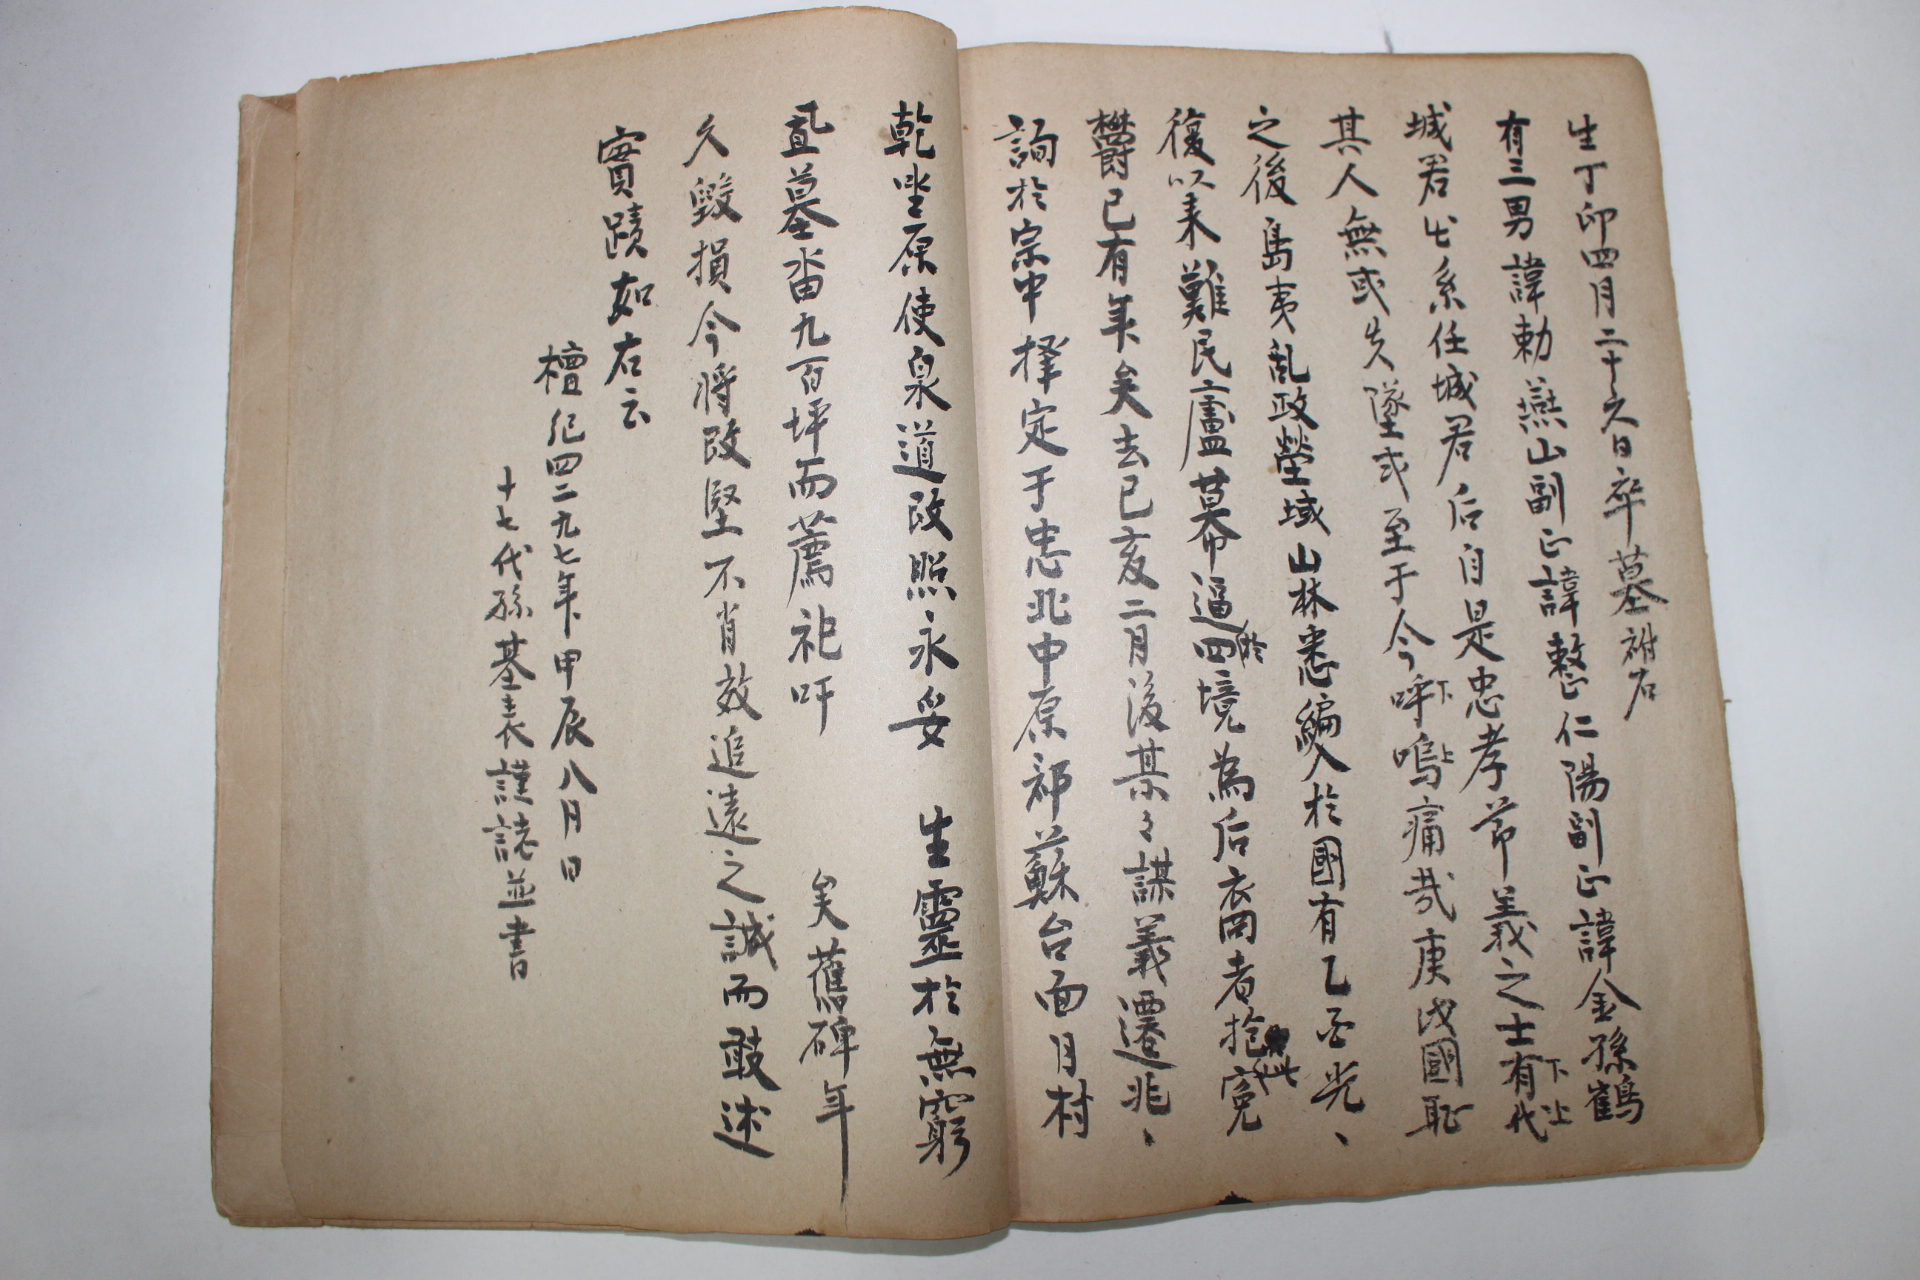 生丁卯四月二十六日卒墓祔右
有三男諱勅燕山副正諱整仁陽副正諱金孫鶴
城君出系任城君后自是忠孝節義之士有代
下上
其人無或失墜或至于今呼嗚痛哉庚戌國恥
下上
之後島夷乱政塋域山林悉編入於國有乙酉光、
復以来難民廬幕逼四境為后裔者抱寃
於
此
鬱已有年矣去己亥二月後某々謀義遷兆、
詢於宗中擇定于忠北中原郡蘇台面月村
乾坐原使泉道改照永妥 生靈於無窮
墓畓九百坪而薦祀吁 矣舊碑年
久毀損今将改竪不肖效追遠之誠而敢述
實蹟如右云
檀紀四二九七年甲辰八月日
十七代孫基表謹誌並書